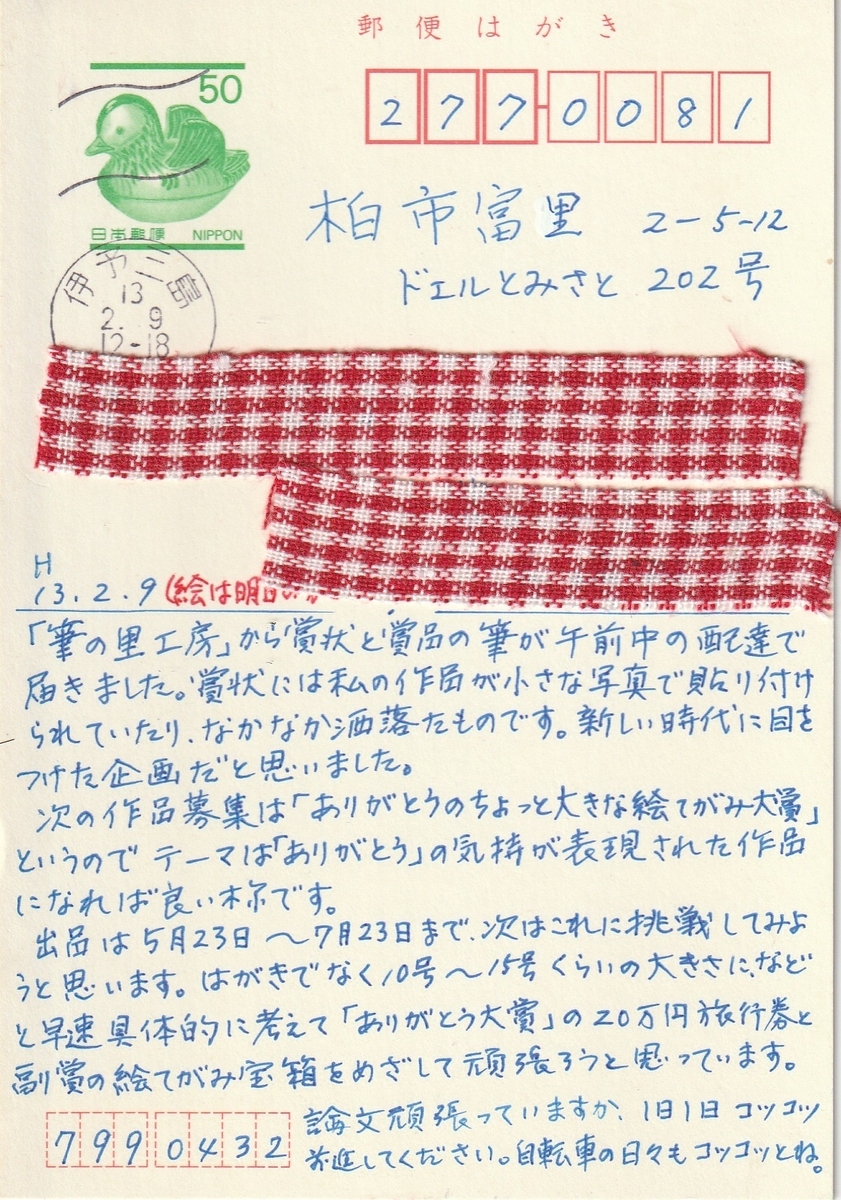 郵便はがき
50
日本郵便 NIPPON
277-0081
柏市富里 2-5-12
ドエルとみさと 202号
伊予三島
13
2. 9
12-18
H
13.2.9 (絵は明日
「筆の里工房」から賞状と賞品の筆が午前中の配達で
届きました。賞状には私の作品が小さな写真で貼り付け
られていたり、なかなか洒落たものです。新しい時代に目を
つけた企画だと思いました。
次の作品募集は「ありがとうのちょっと大きな絵てがみ大賞」
というのでテーマは「ありがとう」の気持が表現された作品
になれば良い様です。
出品は5月23日〜7月23日まで、次はこれに挑戦してみよ
うと思います。はがきでなく10号〜15号くらいの大きさに、など
と早速具体的に考えて「ありがとう大賞」の20万円旅行券と
副賞の絵てがみ宝箱をめざして頑張ろうと思っています。
論文頑張っていますか、1日1日コツコツ
前進してください。自転車の日々もコツコツとね。
7990432